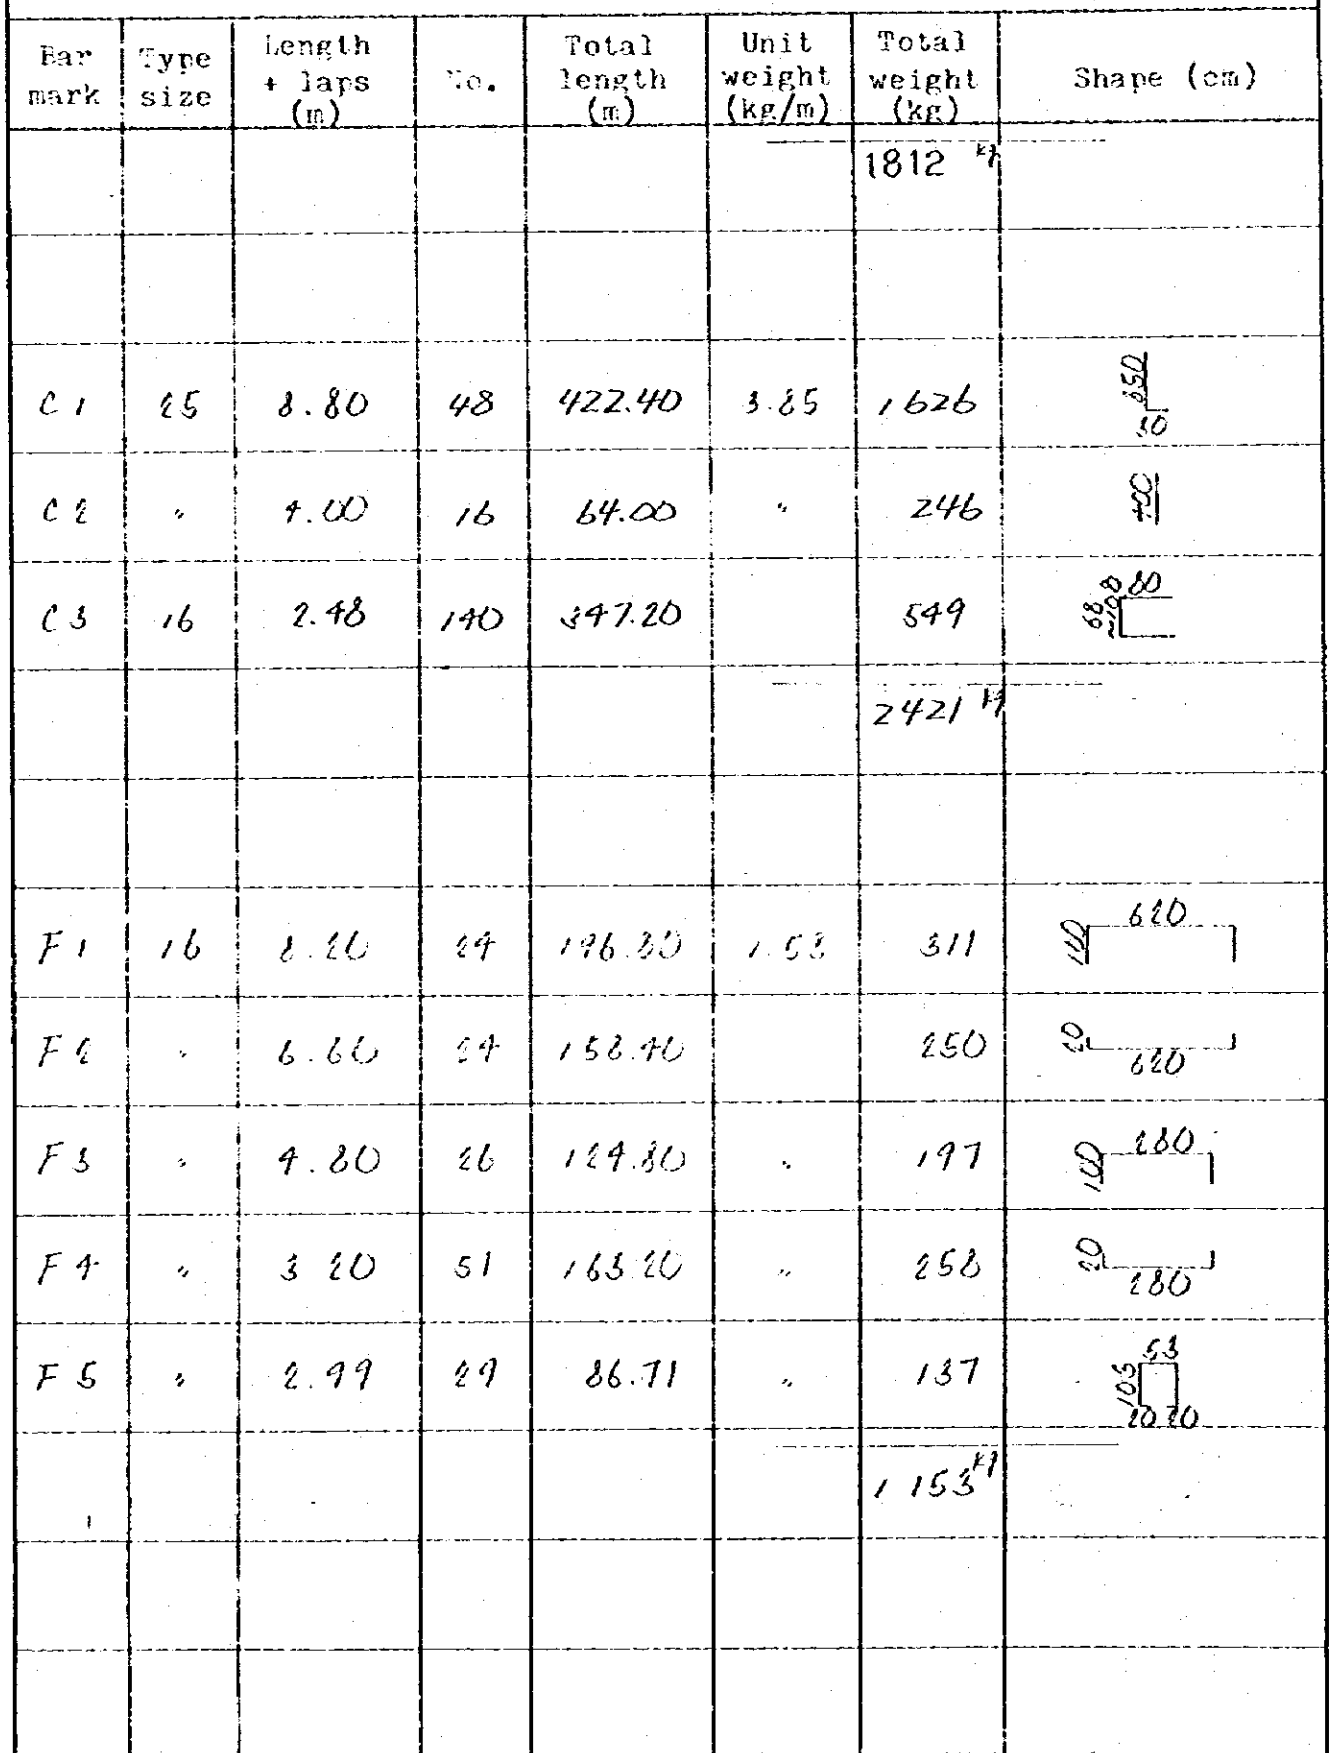 Bar mark Type size Length + laps (m) No. Total length (m) Unit weight (kg/m) Total weight (kg) Shape (cm)
1812 kg
C 1 25 8.80 48 422.40 3.85 1626 850 30
C 2 " 4.00 16 64.00 " 246 400
C 3 16 2.48 140 347.20 549 80
2421 kg
F 1 16 8.20 24 196.80 1.58 311 100 620
F 2 " 6.60 24 158.40 250 20 620
F 3 " 4.80 26 124.80 " 197 100 280
F 4 " 3 20 51 163.20 " 258 20 280
F 5 " 2.99 29 86.71 " 137 103 53 20 20
1 153 kg